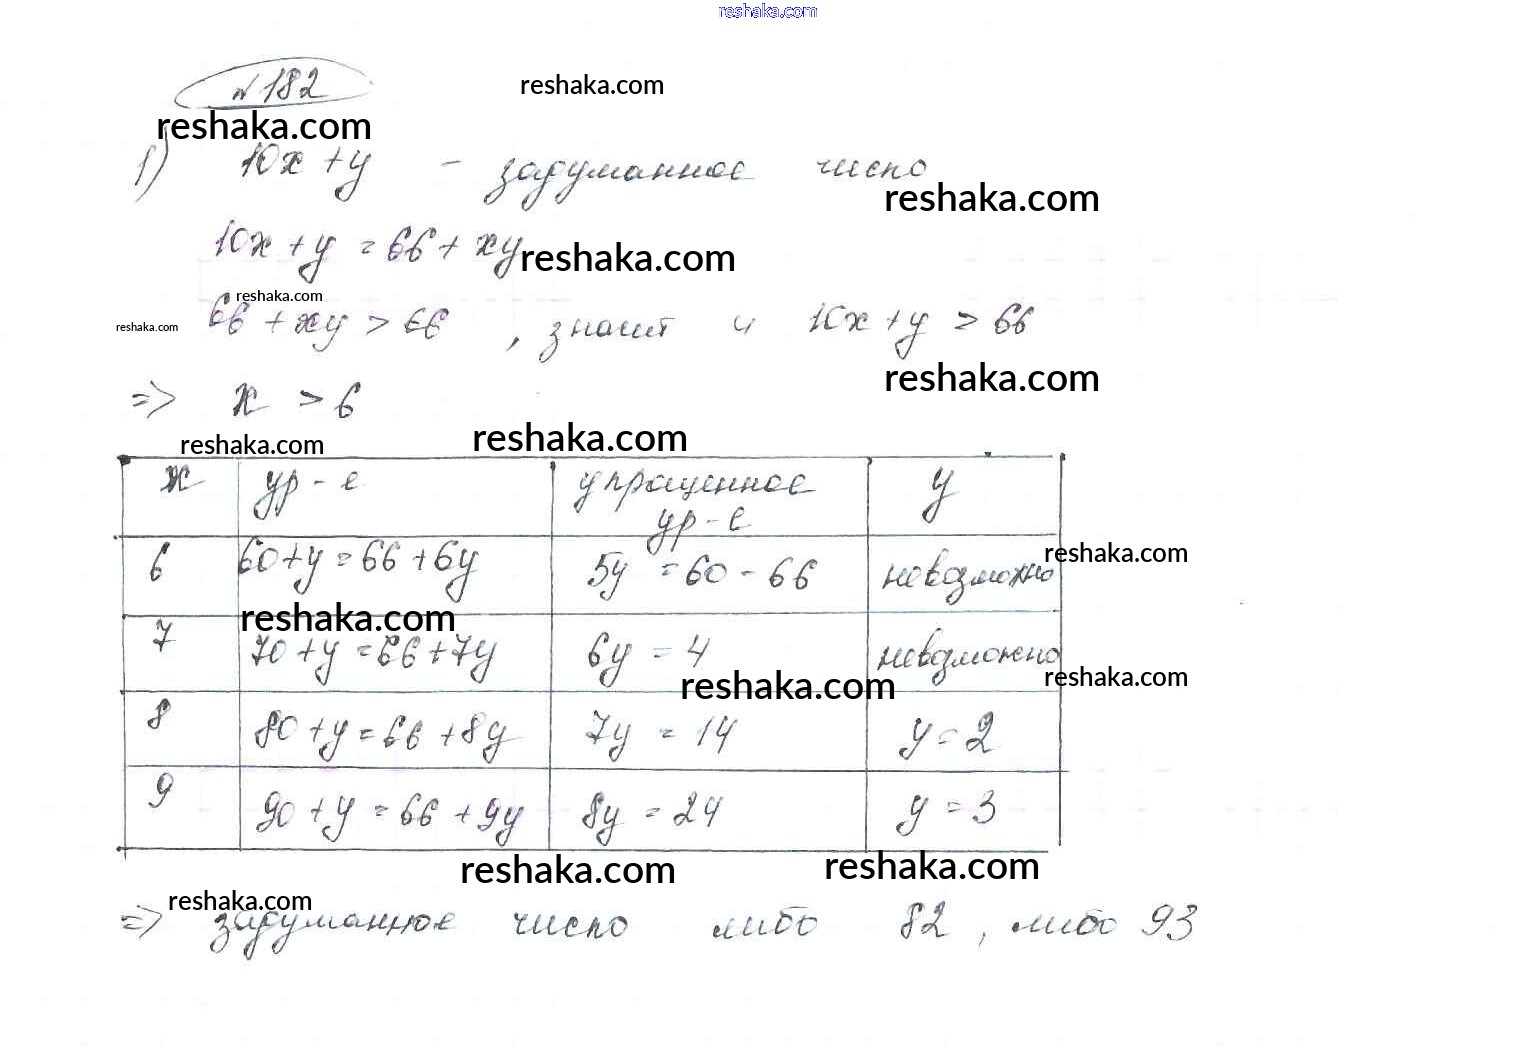 reshaka.com
№182
reshaka.com
reshaka.com
1) 10x + y - задуманное число
reshaka.com
10x + y = 66 + xy
reshaka.com
reshaka.com
66 + xy > 66 , значит и 10x + y > 66
reshaka.com
reshaka.com
=> x > 6
reshaka.com
reshaka.com
x ур-е упрощенное ур-е y
6 60+y=66+6y 5y = 60 - 66 невозможно
reshaka.com
reshaka.com
7 70+y=66+7y 6y = 4 невозможно
reshaka.com
reshaka.com
8 80+y=66+8y 7y = 14 y=2
9 90+y=66+9y 8y = 24 y=3
reshaka.com
reshaka.com
reshaka.com
=> задуманное число либо 82 , либо 93